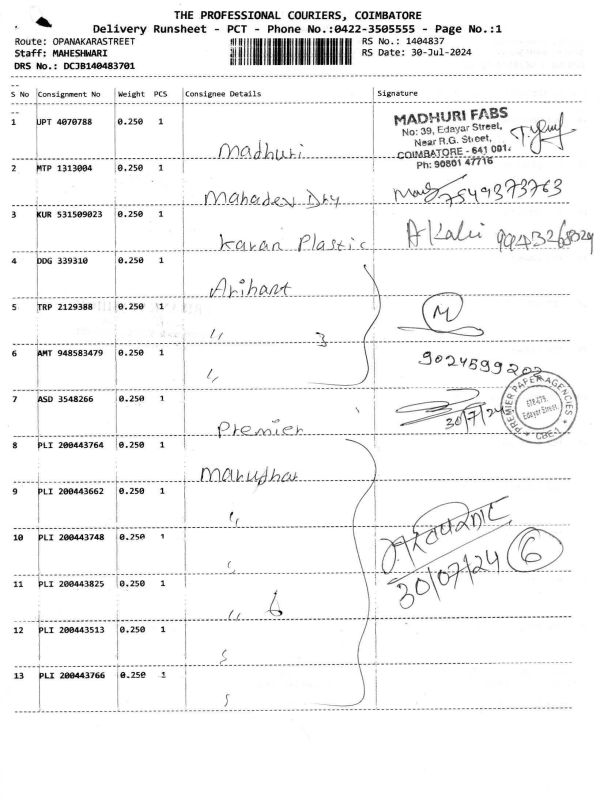 THE PROFESSIONAL COURIERS, COIMBATORE
Delivery Runsheet - PCT - Phone No.:0422-3505555 - Page No.:1
Route: OPANAKARASTREET RS No.: 1404837
Staff: MAHESHWARI RS Date: 30-Jul-2024
DRS No.: DCJB140483701
S No Consignment No Weight PCS Consignee Details Signature
1 UPT 4070788 0.250 1 Madhuri
MADHURI FABS
No: 39, Edayar Street,
Near R.G. Street,
COIMBATORE - 641 001.
Ph: 90801 47716
2 MTP 1313004 0.250 1 Mahadev Dry 7549373763
3 KUR 531509023 0.250 1 Karan Plastic A Kali
4 DDG 339310 0.250 1 Arihant
5 TRP 2129388 0.250 1 ,, 3 M
6 AMT 948583479 0.250 1 ,, 9024599202
7 ASD 3548266 0.250 1 Premier 30/7/24
PREMIER PAPER AGENCIES
Edayar Street,
CBE-1
8 PLI 200443764 0.250 1 Marudhar
9 PLI 200443662 0.250 1 ,,
10 PLI 200443748 0.250 1 ,,
30/07/24 6
11 PLI 200443825 0.250 1 ,, 6
12 PLI 200443513 0.250 1
13 PLI 200443766 0.250 1